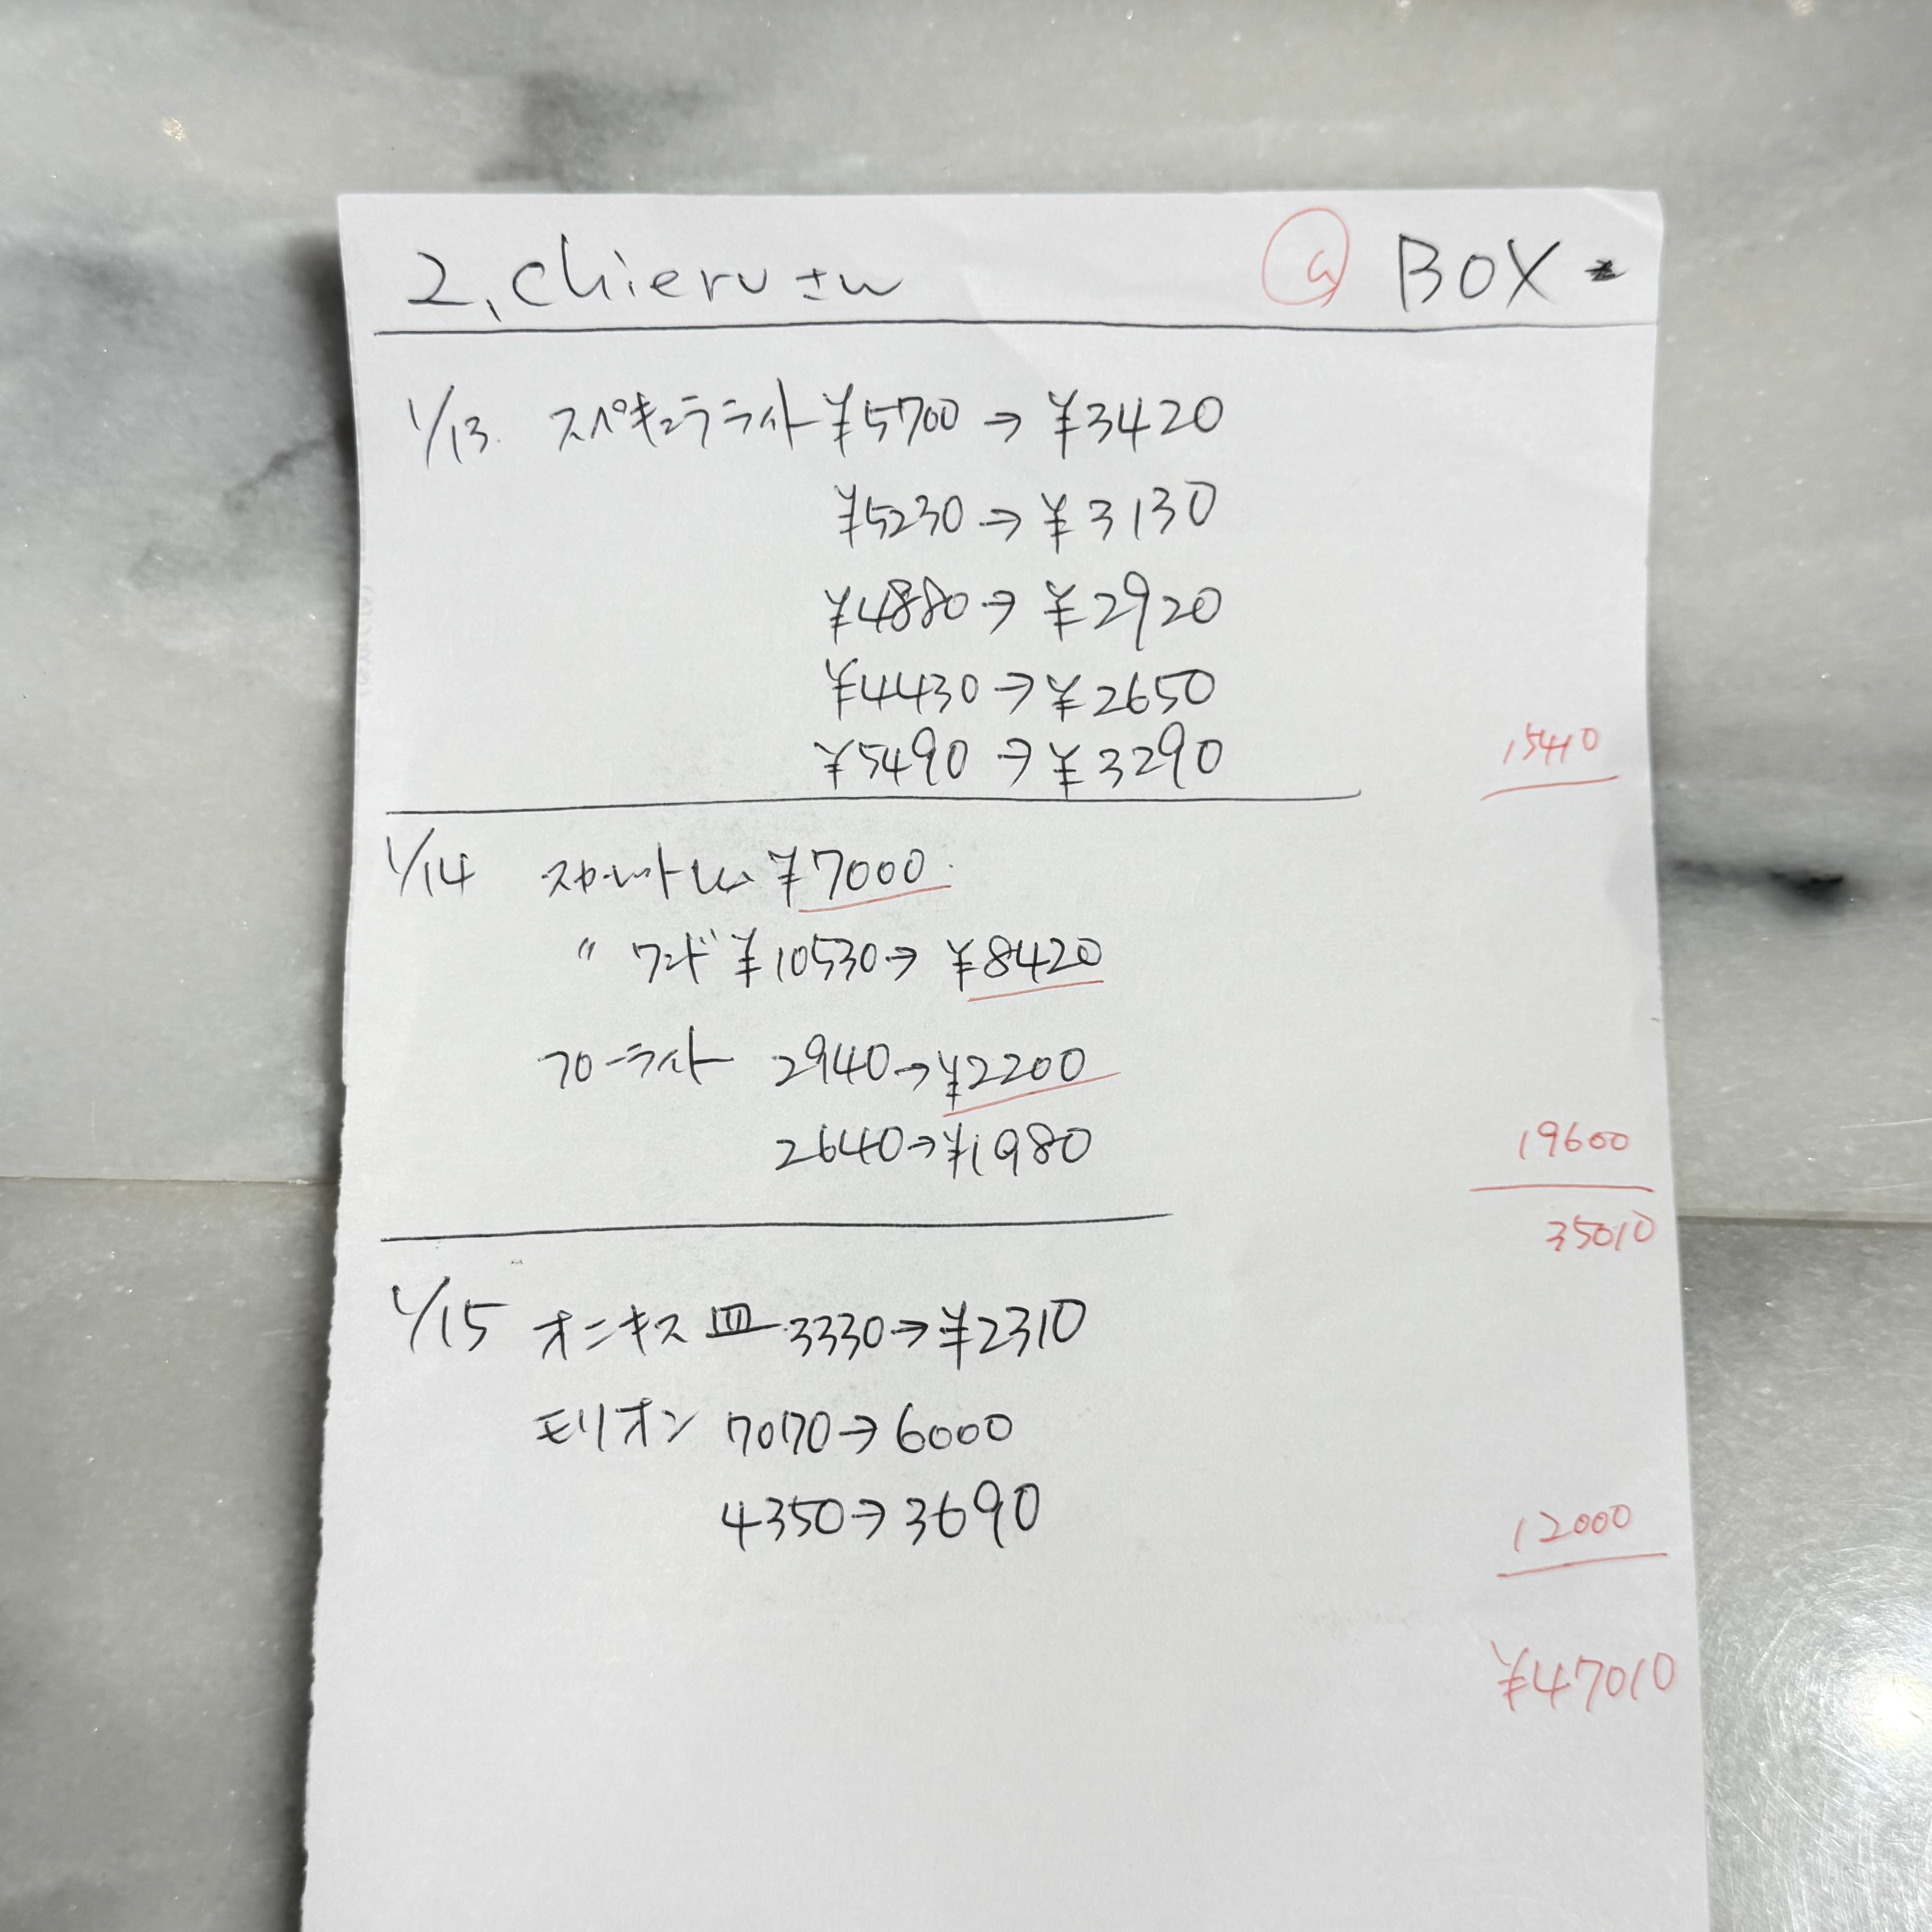 2、Chieruさん ⓐ BOX
1/13 スペキュラライト ¥5700 → ¥3420
¥5230 → ¥3130
¥4880 → ¥2920
¥4430 → ¥2650
¥5490 → ¥3290
15410
1/14 ¥7000
〃 ワンド ¥10530 → ¥8420
フローライト 2940 → ¥2200
2640 → ¥1980
19600
35010
1/15 オニキス皿 3330 → ¥2310
モリオン 7070 → 6000
4350 → 3690
12000
¥47010